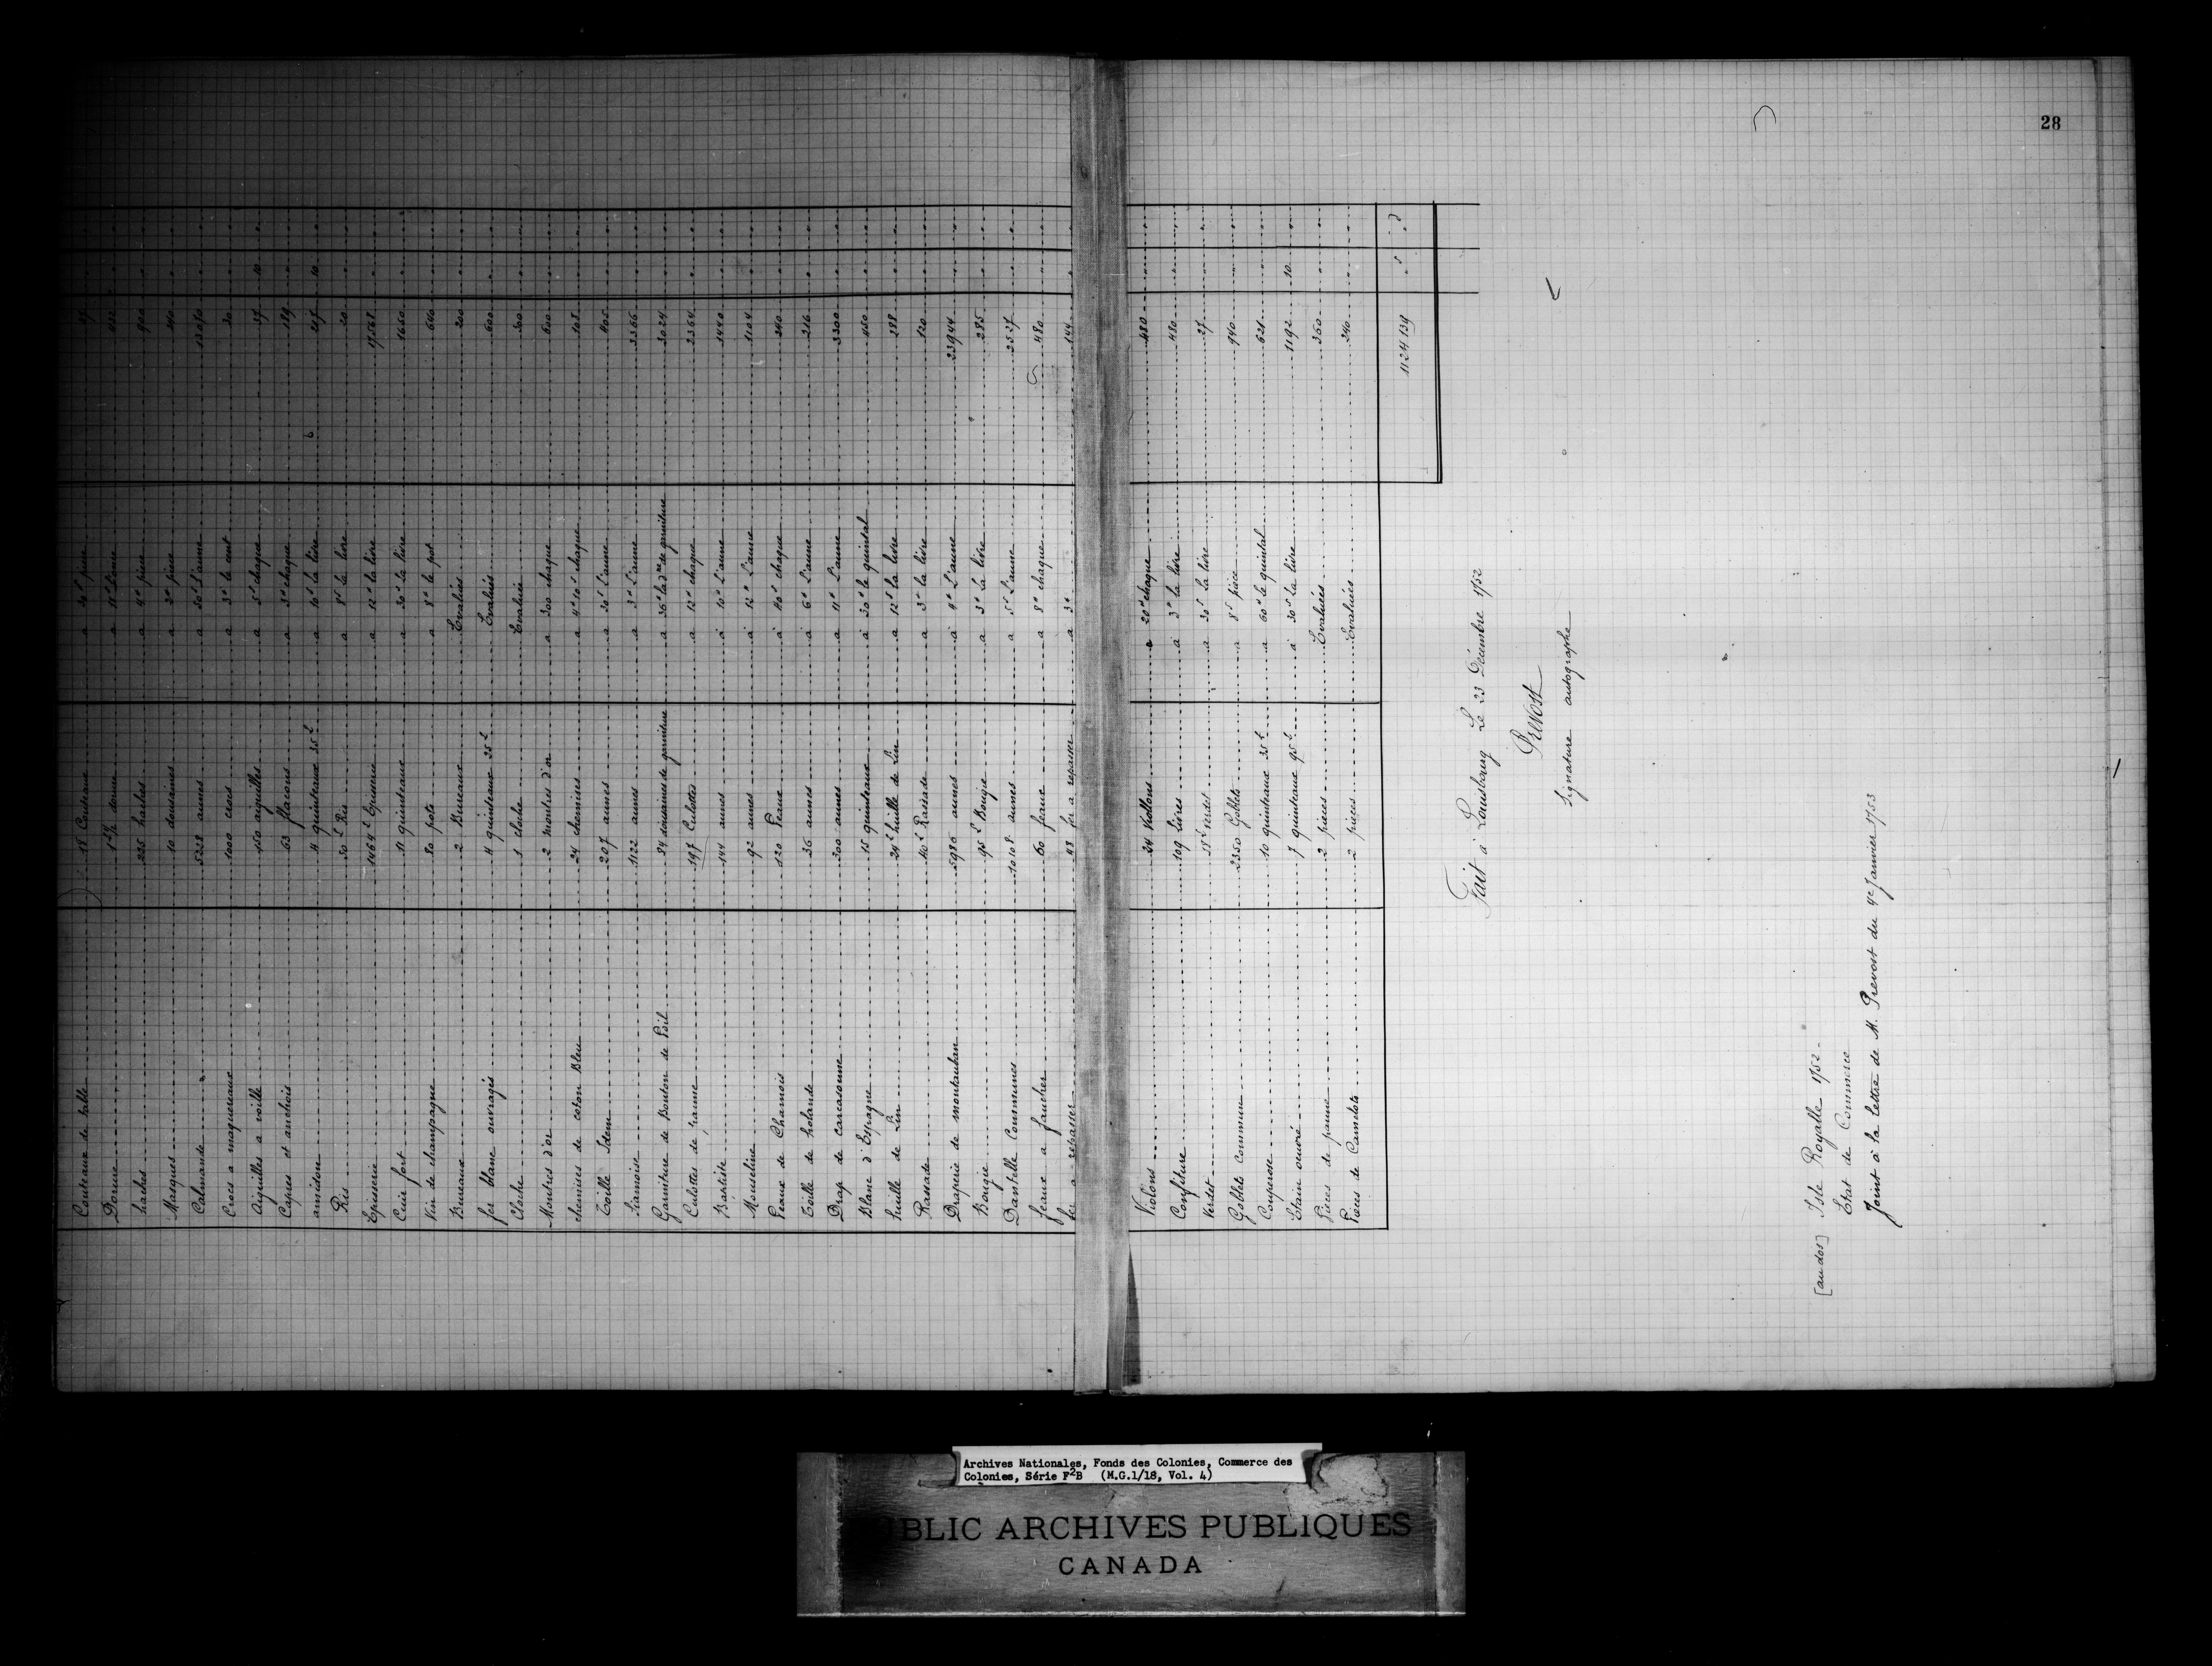 28
Couteaux de table 18 Couteaux a 30s piece 27
Dorure a 11# L'once
haches 225 haches a 4# piece 900
Masques 10 douzaines a 2# piece 240
Calmande 5228 aunes a 50s L'aune 13070
Crocs a maquereaux 1000 crocs a 3# le cent 30
Aiguilles a voille 150 aiguilles a 5s chaque 37 10
Capres et anchois 63 flacons a 3# chaque 189
amidon 4 quinteaux 25L a 10s la livre 10
Ris 50L Ris a 8s la livre 20
Episserie 1464L Epicerie a 12# la livre 17568
Cuir fort 11 quinteaux a 30s la livre 1650
Vin de champagne 80 pots a 8# le pot 640
Bureaux 2 Bureaux Evalués 200
fer blanc ouvragés 4 quinteaux 25L Evalués 600
Cloche 1 cloche Evaluée 300
Montres d'or 2 montres d'or a 300 chaque 600
chemises de coton Bleu 24 chemises a 4# 10s chaque 108
Toille Idem 207 aunes a L'aune
Siamoise 1122 aunes a 3# L'aune 3366
Garniture de Bouton de Poil 84 douzaines de garniture a 36# la dne de garniture 3024
Culottes de panne 197 Culottes a 12# chaque 2364
Baptiste 144 aunes à 10# L'aune 1440
Mousseline 92 aunes à 12# L'aune 1104
Peaux de Chamois 120 Peaux à 40s chaque 240
Toille de holande 36 aunes à 6# L'aune 216
Drap de carcasonne 300 aunes a 11# L'aune 3300
Blanc d'Espagne 15 quinteaux à 30# le quintal 450
huille de Lin 24L huille de Lin a 12# la livre 288
Rassade 40L Rassade a 3# la livre 120
Draperie de montauban 5986 aunes à 4# L'aune 23944
Bougie 95L Bougie a 3# la livre 285
Dantelle Communes aunes a 5s L'aune
feaux a faucher 60 feaux a 8# chaque 480
fer a repasser 48 fer a repasser a 3# 144
Violons 24 Violons a 20# chaque 480
Confiture 109 livres à 3# la livre 480
Verdet 18L verdet a 30s la livre 27
Goblets commun 2350 Goblets a 8s piece 940
Couperose 10 quinteaux 35L a 60# le quintal 621
Etain oeuvré 7 quinteaux 95L à 30s la livre 1192 10
Pieces de panne 2 pieces Evaluées 360
Pieces de Camelots 2 pieces Evaluées 240
1124139
Fait à Louisbourg Le 23 Décembre 1752
Prevost
Signature autographe
[au dos] Isle Royalle 1752 -
Etat de Commerce
Joint à la Lettre de M. Prevost du 4e Janvier 1753
Archives Nationales, Fonds des Colonies, Commerce des
Colonies, Série F2B (M.G.1/18, Vol. 4)
PUBLIC ARCHIVES PUBLIQUES
CANADA